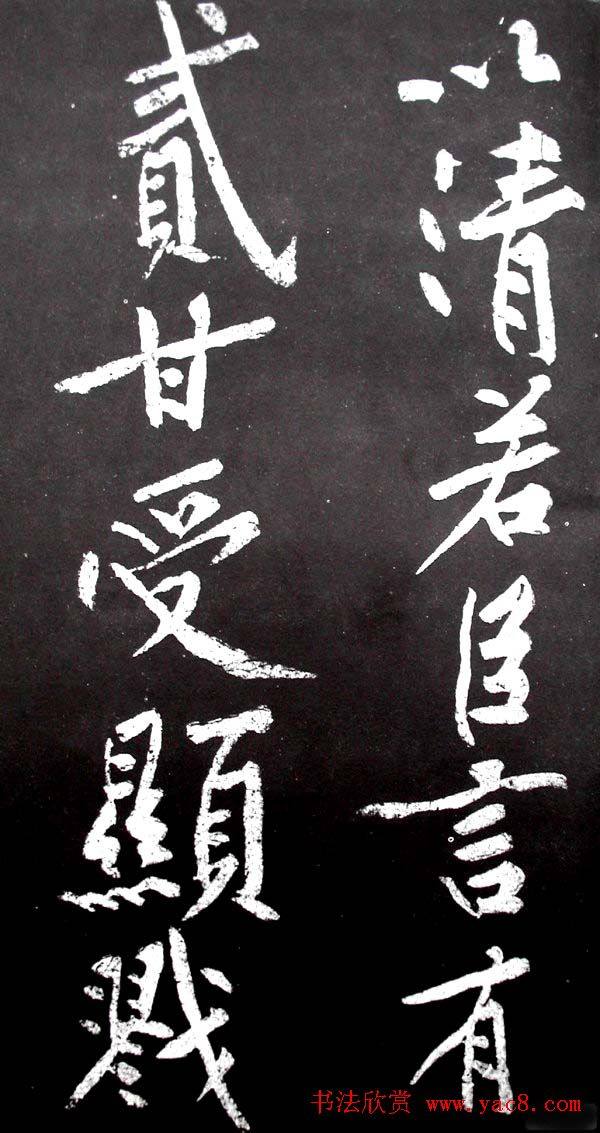 以清若臣言有
貳甘受顯戮
书法欣赏 www.yac8.com